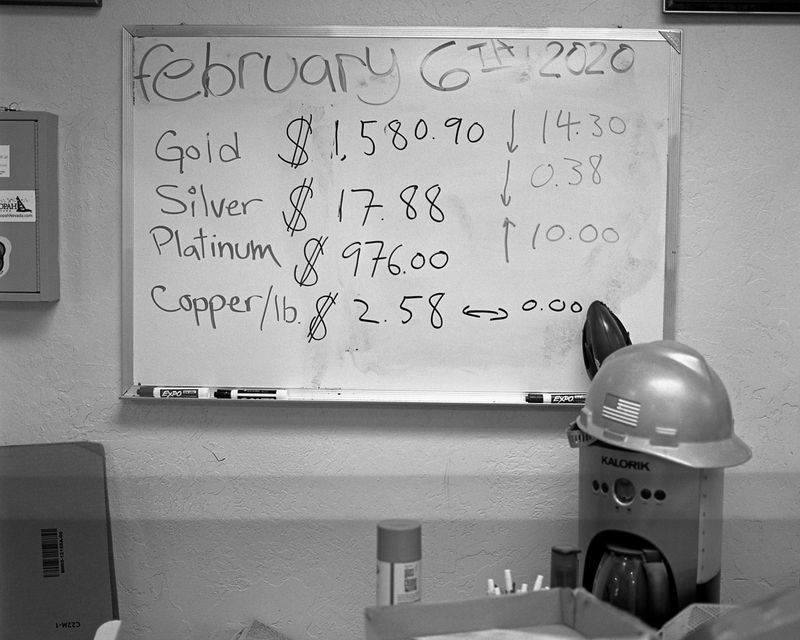 february 6TH 2020
Gold $ 1,580.90 ↓ 14.30
Silver $ 17.88 ↓ 0.38
Platinum $ 976.00 ↑ 10.00
Copper/lb. $ 2.58 ↔ 0.00
EXPO
EXPO
KALORIK
C22M-1